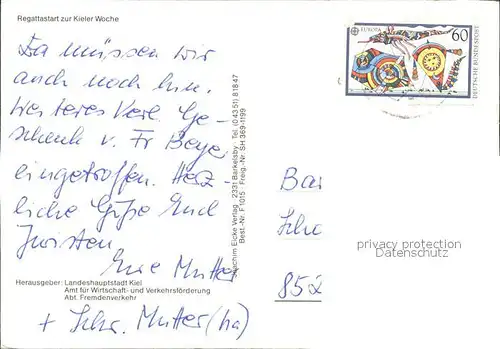 Regattastart zur Kieler Woche
Da müssen wir
auch noch hin.
Weiteres Verl. Ge-
schenk v. Fr Beye
eingetroffen. Herz-
liche Grüße
Eure Mutter
Herausgeber: Landeshauptstadt Kiel
Amt für Wirtschaft- und Verkehrsförderung
Abt. Fremdenverkehr
+ Schw. Mutter (ha)
Joachim Eicke Verlag 2331 Barkelsby Tel. (0 43 51) 8 18 47
Best.-Nr. F1015 Freig.-Nr. SH 369-1199
EUROPA
60
DEUTSCHE BUNDESPOST
852
privacy protection
Datenschutz